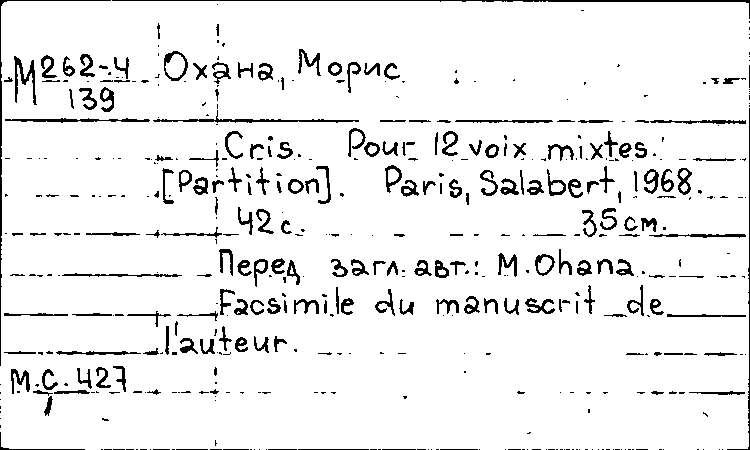 М 262-4
139
Охана, Морис
Cris. Pour 12 voix mixtes.
[Partition]. Paris, Salabert, 1968.
42 с. 35 см.
Перед загл. авт.: M. Ohana.
Facsimile du manuscrit de
l'auteur.
М.С. 427